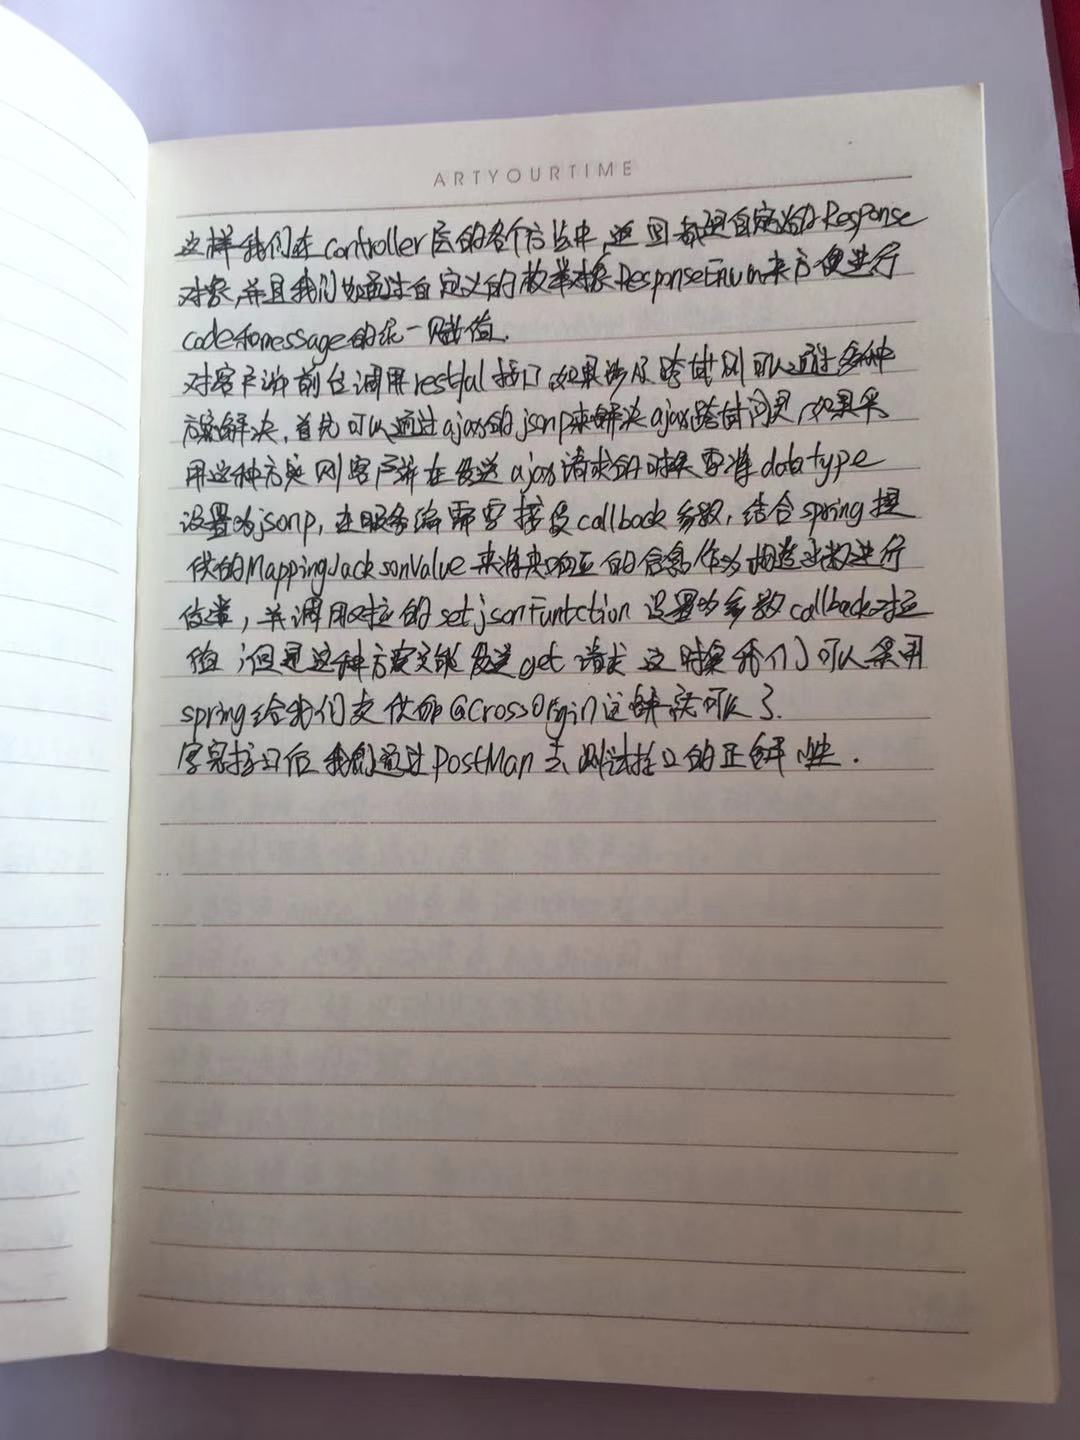 ARTYOURTIME
这样我们在controller层的各个方法中,返回都是自定义的Response
对象,并且我们也通过自定义的枚举对象ResponseEnum来方便进行
code和message的统一赋值.
对客户端前台调用restful接口如果涉及跨域则可以通过多种
方案解决,首先可以通过ajax的jsonp来解决ajax跨域问题,如果采
用这种方案则客户端在发送ajax请求的时候要准datatype
设置为jsonp,在服务端需要接受callback参数,结合spring提
供的MappingJacksonValue来将来响应的信息作为构造参数进行
传递,并调用对应的setjsonFuntction设置为参数callback对应
值;但是这种方案只能发送get请求 这时候我们可以采用
spring给我们提供的@CrossOrgin注解就可以了.
写完接口后 我们通过PostMan去测试接口的正确性.